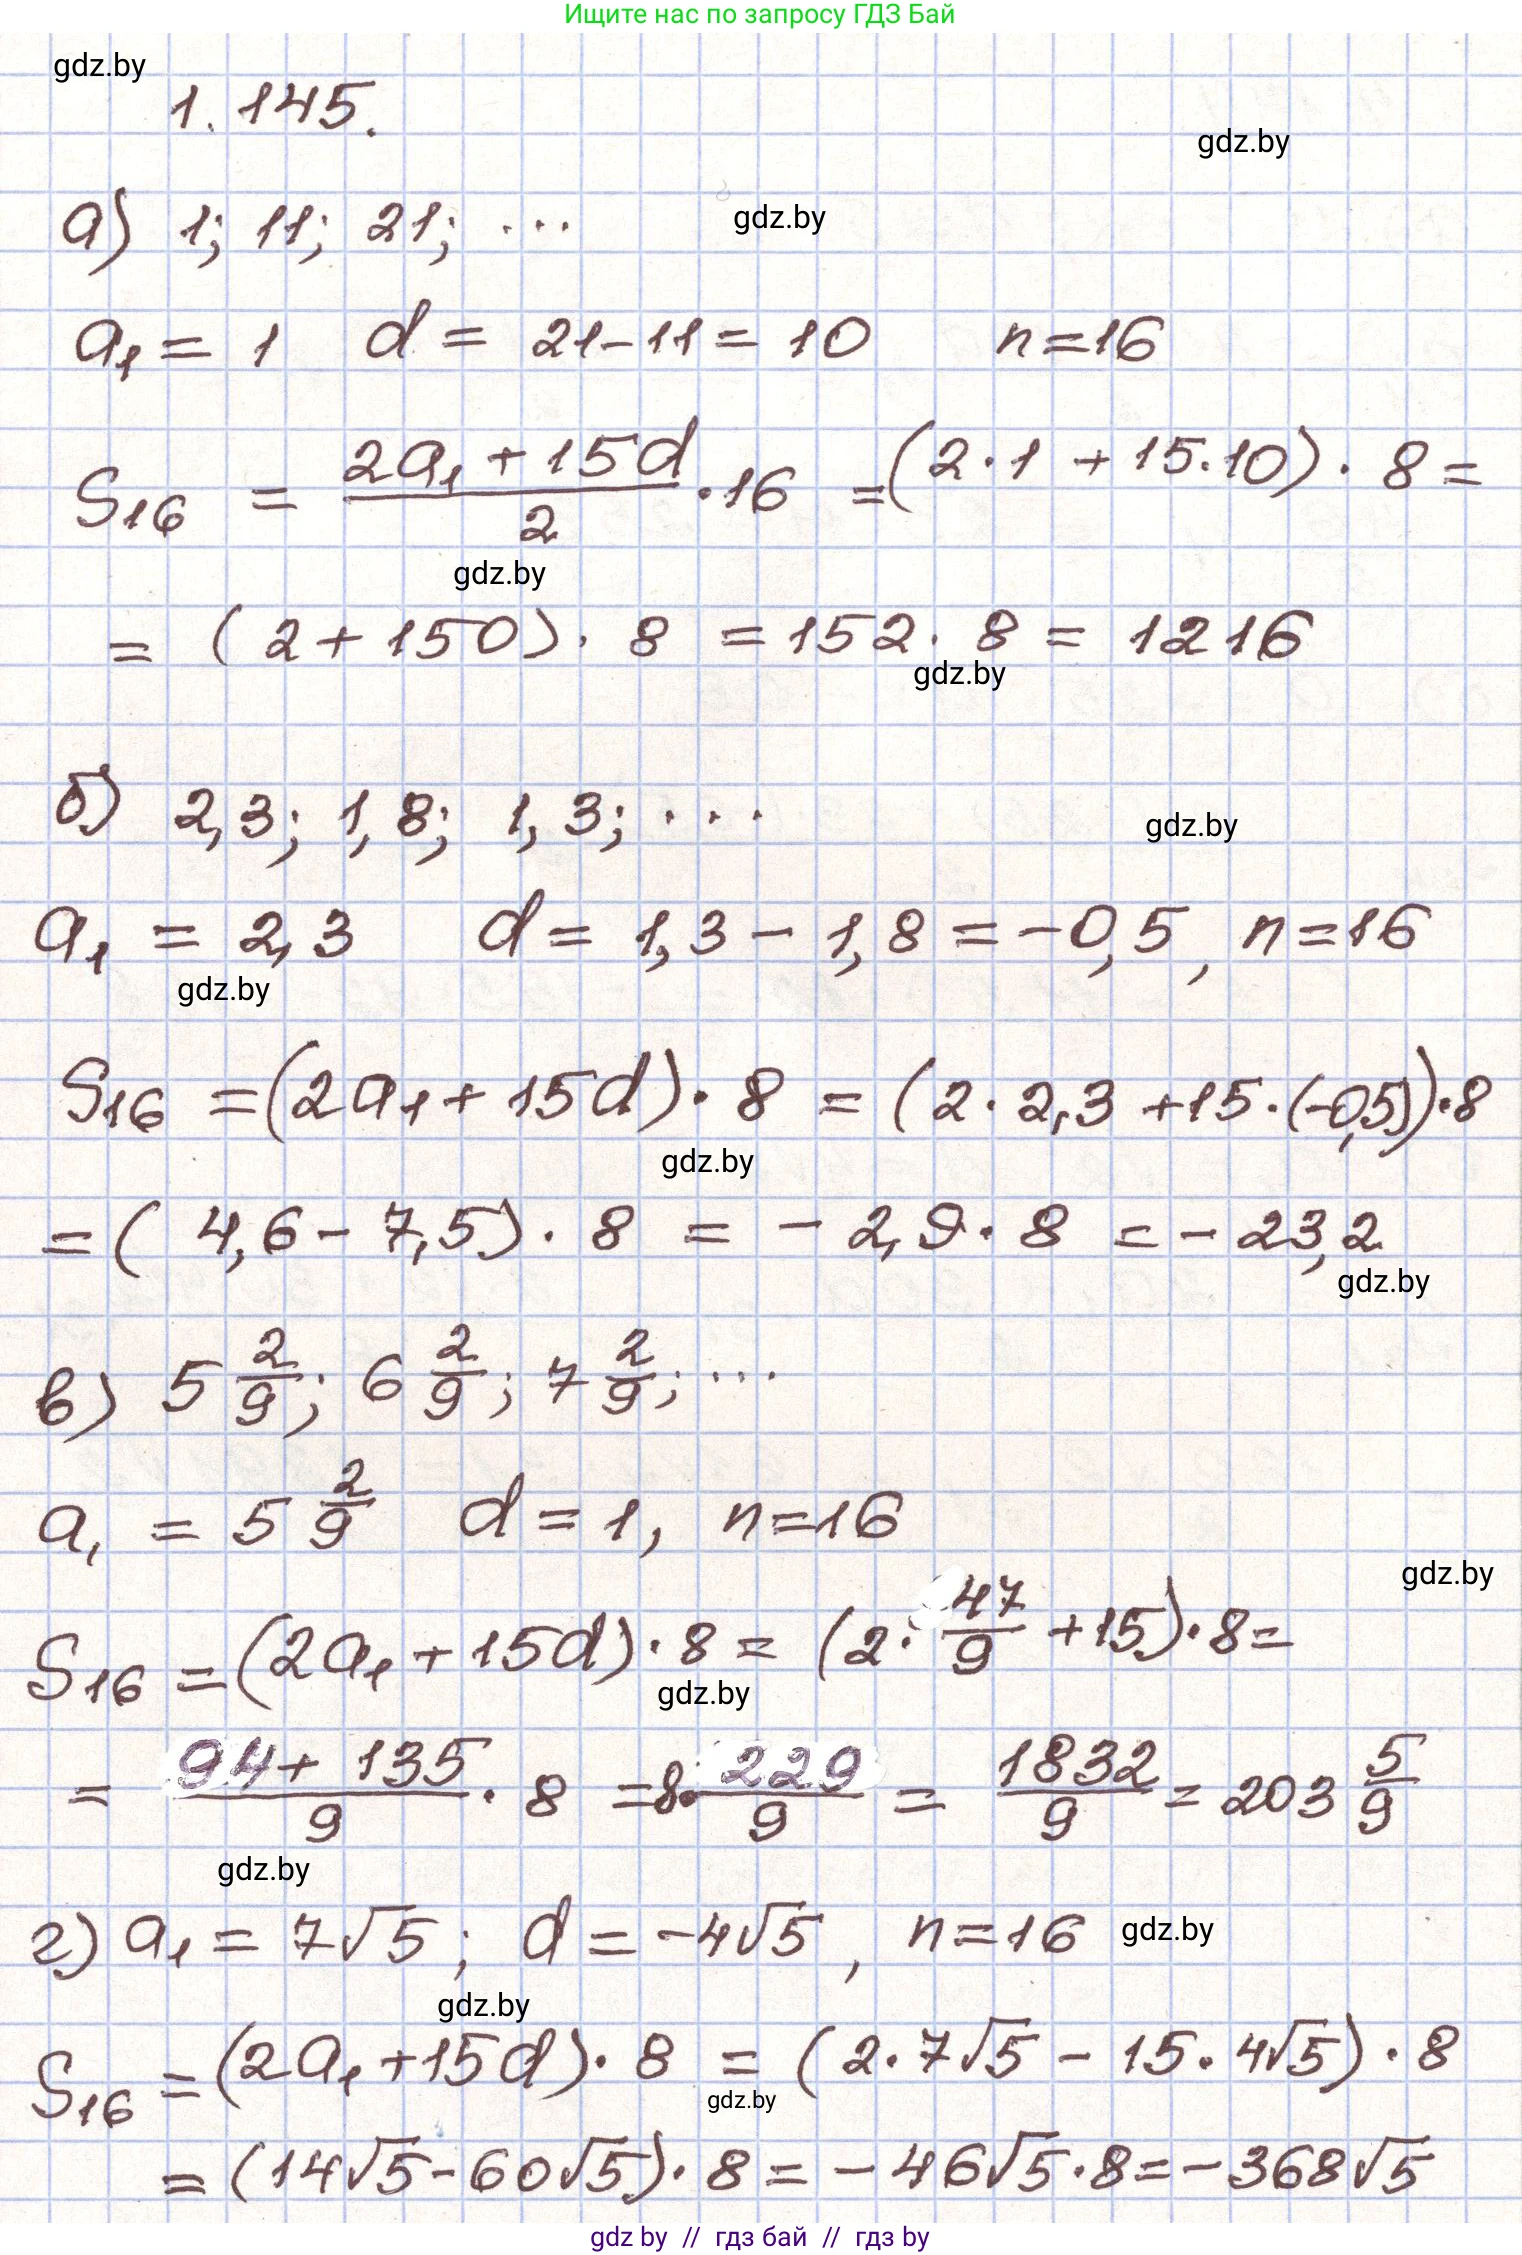 Ищите нас по запросу ГДЗ Бай
gdz.by
1.145.
gdz.by
а) 1; 11; 21; ...
gdz.by
a₁ = 1   d = 21-11 = 10   n=16
S₁₆ = (2a₁ + 15d)/2 · 16 = (2·1 + 15·10) · 8 =
gdz.by
= (2+150) · 8 = 152 · 8 = 1216
gdz.by
б) 2,3; 1,8; 1,3; ...
gdz.by
a₁ = 2,3   d = 1,3 - 1,8 = -0,5, n=16
gdz.by
S₁₆ = (2a₁ + 15d) · 8 = (2 · 2,3 + 15 · (-0,5)) · 8
gdz.by
= (4,6 - 7,5) · 8 = - 2,9 · 8 = - 23,2
gdz.by
в) 5 2/9; 6 2/9; 7 2/9; ...
a₁ = 5 2/9   d = 1, n=16
gdz.by
S₁₆ = (2a₁ + 15d) · 8 = (2 · 47/9 + 15) · 8 =
gdz.by
= (94 + 135)/9 · 8 = 8 · 229/9 = 1832/9 = 203 5/9
gdz.by
г) a₁ = 7√5; d = -4√5, n=16
gdz.by
gdz.by
S₁₆ = (2a₁ + 15d) · 8 = (2 · 7√5 - 15 · 4√5) · 8
gdz.by
= (14√5 - 60√5) · 8 = - 46√5 · 8 = - 368√5
gdz by // гдз бай // гдз by